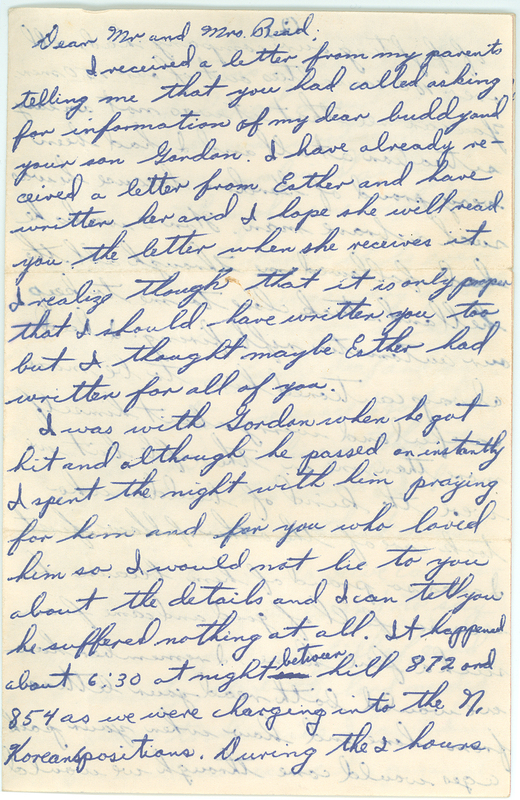 Dear Mr and Mrs. Read;
I received a letter from my parents
telling me that you had called asking
for information of my dear buddy and
your son Gordon. I have already re-
ceived a letter from Esther and have
written her and I hope she will read
you the letter when she receives it.
I realize though that it is only proper
that I should have written you too
but I thought maybe Esther had
written for all of you.
I was with Gordon when he got
hit and although he passed on instantly
I spent the night with him praying
for him and for you who loved
him so. I would not lie to you
about the details and I can tell you
he suffered nothing at all. It happened
about 6:30 at night between hill 872 and
854 as we were charging into the N.
Korean positions. During the 2 hours